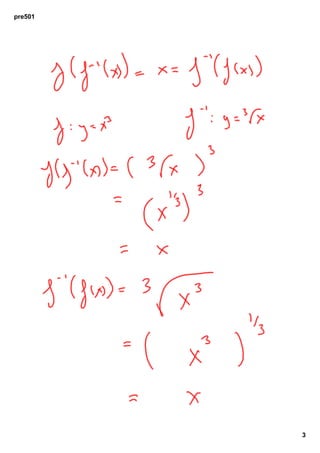 pre501
f(f⁻¹(x)) = x = f⁻¹(f(x))
f: y = x³ f⁻¹: y = ³√x
f(f⁻¹(x)) = (³√x)³
= (x^{1/3})³
= x
f⁻¹(f(x)) = ³√x³
= (x³)^{1/3}
= x
3